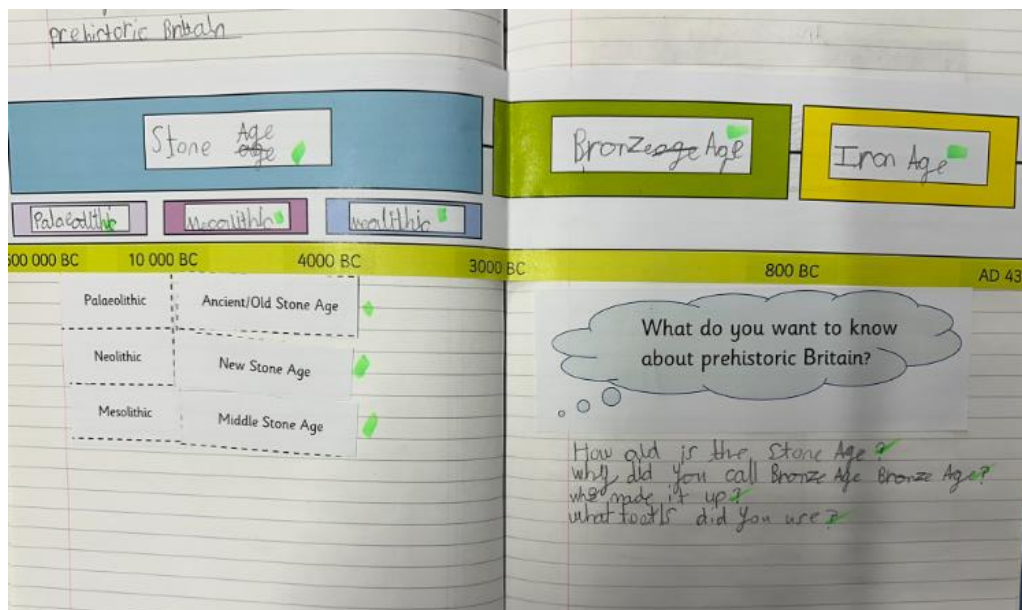 prehictoric Britain
Stone Age
Bronze Age
Iron Age
Palaeolithic
Mesolithic
neolithic
500 000 BC
10 000 BC
4000 BC
3000 BC
800 BC
AD 43
Palaeolithic
Ancient/Old Stone Age
Neolithic
New Stone Age
Mesolithic
Middle Stone Age
What do you want to know
about prehistoric Britain?
How old is the Stone Age?
why did you call Bronze Age Bronze Age?
who made it up?
what tools did you use?